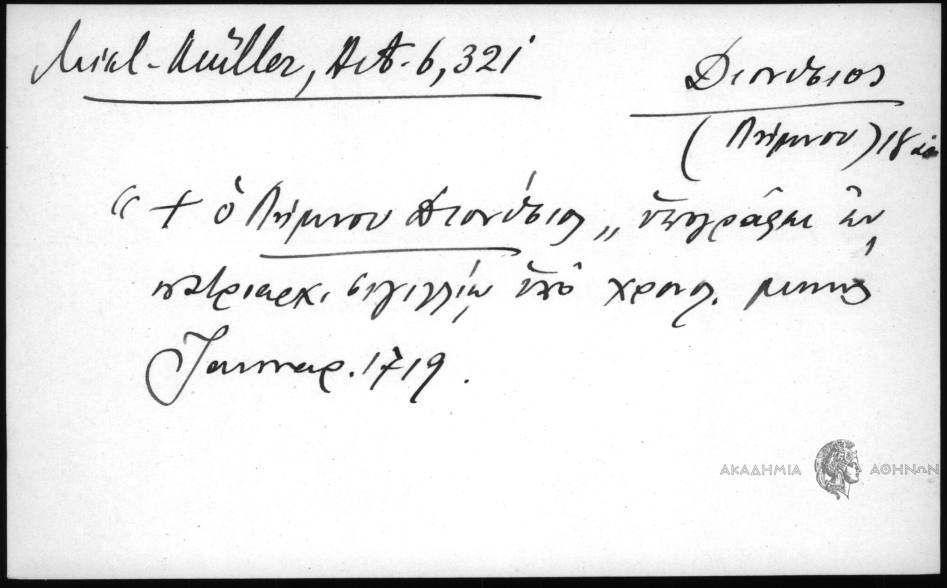 Mikl-Müller, Act. 6, 321
Διονύσιος
(Λήμνου) 18
“ + ὁ Λήμνου Διονύσιος „ ὑπογράφει ἐν
πατριαρχι. σιγιλλίῳ ὑπὸ χρονολ. μηνὸς
Ἰανουαρ. 1719.
ΑΚΑΔΗΜΙΑ ΑΘΗΝΩΝ